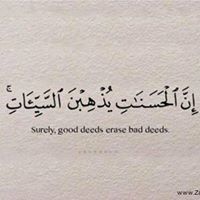 إِنَّ الْحَسَنَاتِ يُذْهِبْنَ السَّيِّئَاتِ ۚ
Surely, good deeds erase bad deeds.